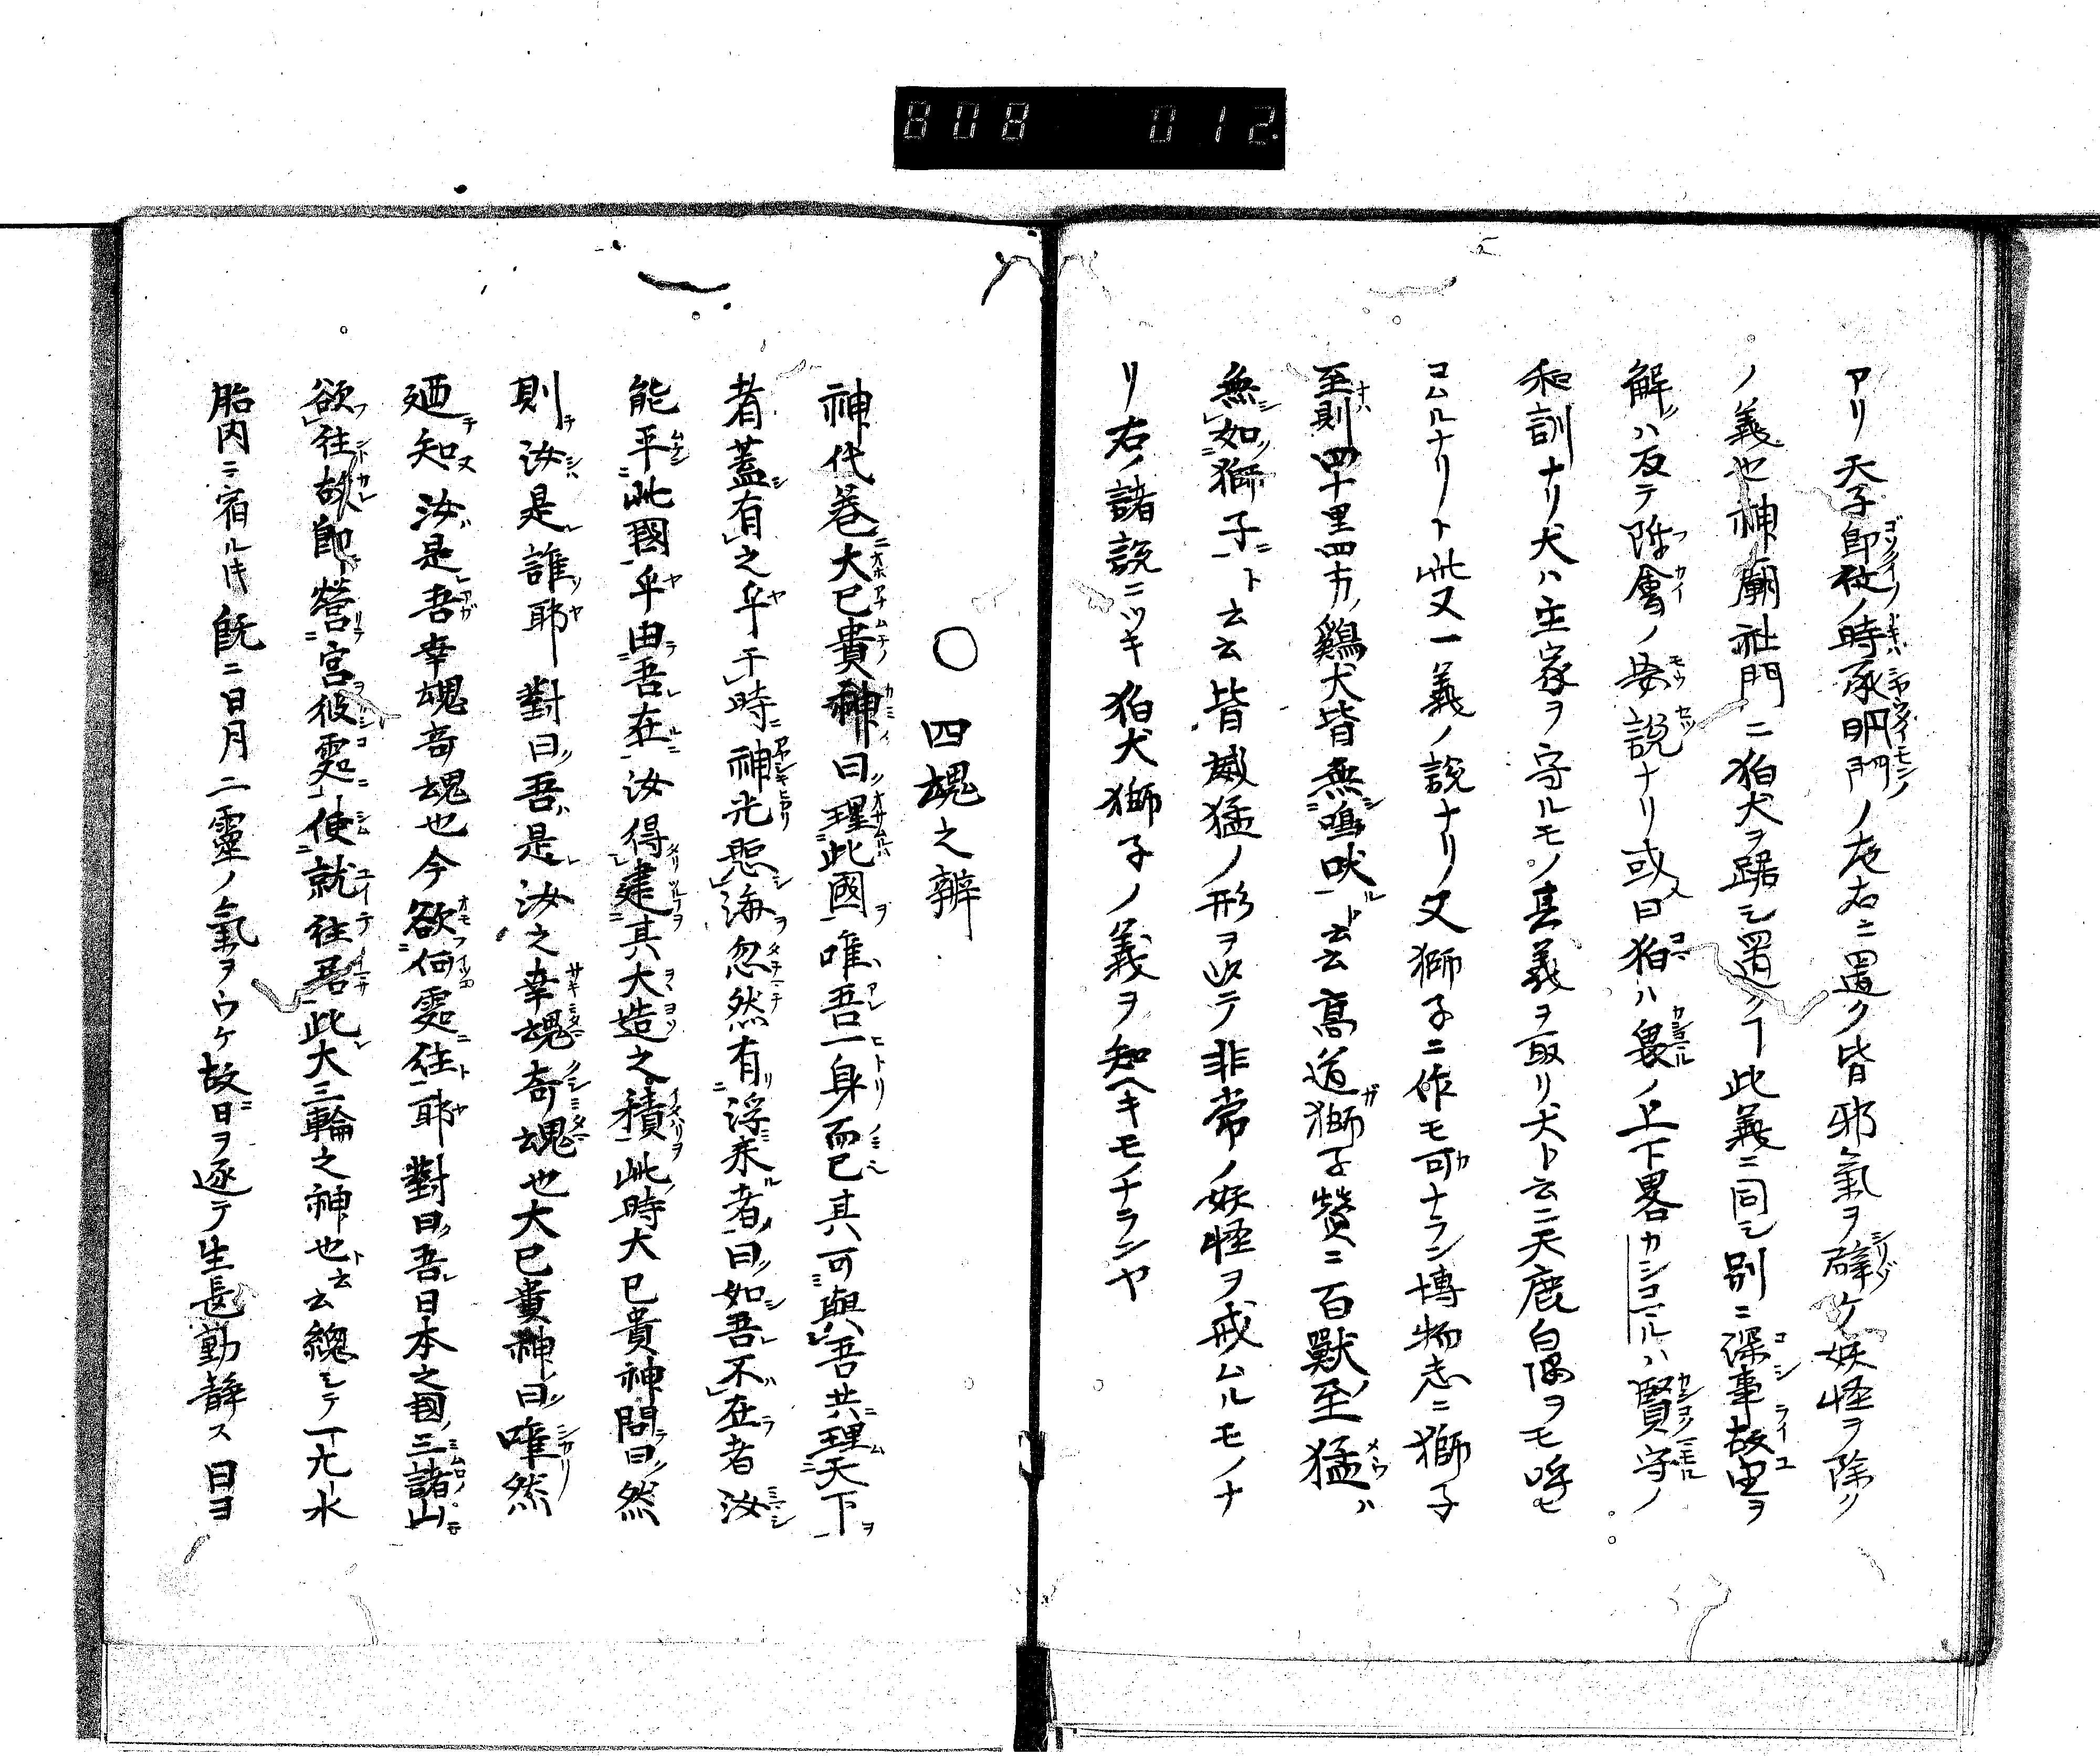 808 012
アリ天子即位ノ時承明門ノ左右ニ置ク皆邪氣ヲ辟ケ妖怪ヲ除ク
ノ義也神廟社門ニ狛犬ヲ踞シ置クヿ此義ニ同シ別ニ深事故由ヲ
解ハ反テ附會ノ妄説ナリ或曰狛ハ ノ上下畧カシコマルハ賢守ノ
和訓ナリ犬ハ主家ヲ守ルモノ其義ヲ取リ犬ト云ニ天鹿白 ヲモ呼ヒ
コムルナリト此又一義ノ説ナリ又獅子ニ作モ可ナラン博物志ニ獅子
至則四十里四方ノ鷄犬皆無鳴吠ト云云高道獅子賛ニ百獸至猛ハ
無如獅子ト云云皆威猛ノ形ヲ以テ非常ノ妖怪ヲ戒ムルモノナ
リ右ノ諸説ニツキ狛犬獅子ノ義ヲ知ヘキモノナランヤ
〇四魂之辨
神代巻大已貴神曰理此國唯吾一身而已其可與吾共理天下
者蓋有之乎于時神光照海忽然有浮来者曰如吾不在者汝
能平此國乎由吾在汝得建其大造之積此時大已貴神問曰然
則汝是誰耶對曰吾是汝之幸魂奇魂也大已貴神曰唯然
廼知汝是吾幸魂奇魂也今欲何處住耶對曰吾日本之國三諸山
欲住故即營宮彼處使就往居此大三輪之神也ト云云總シテ一元水
胎内ニ宿ル時既ニ日月二靈ノ氣ヲウケ故ニ日ヲ逐テ生長動静ス日ヨ